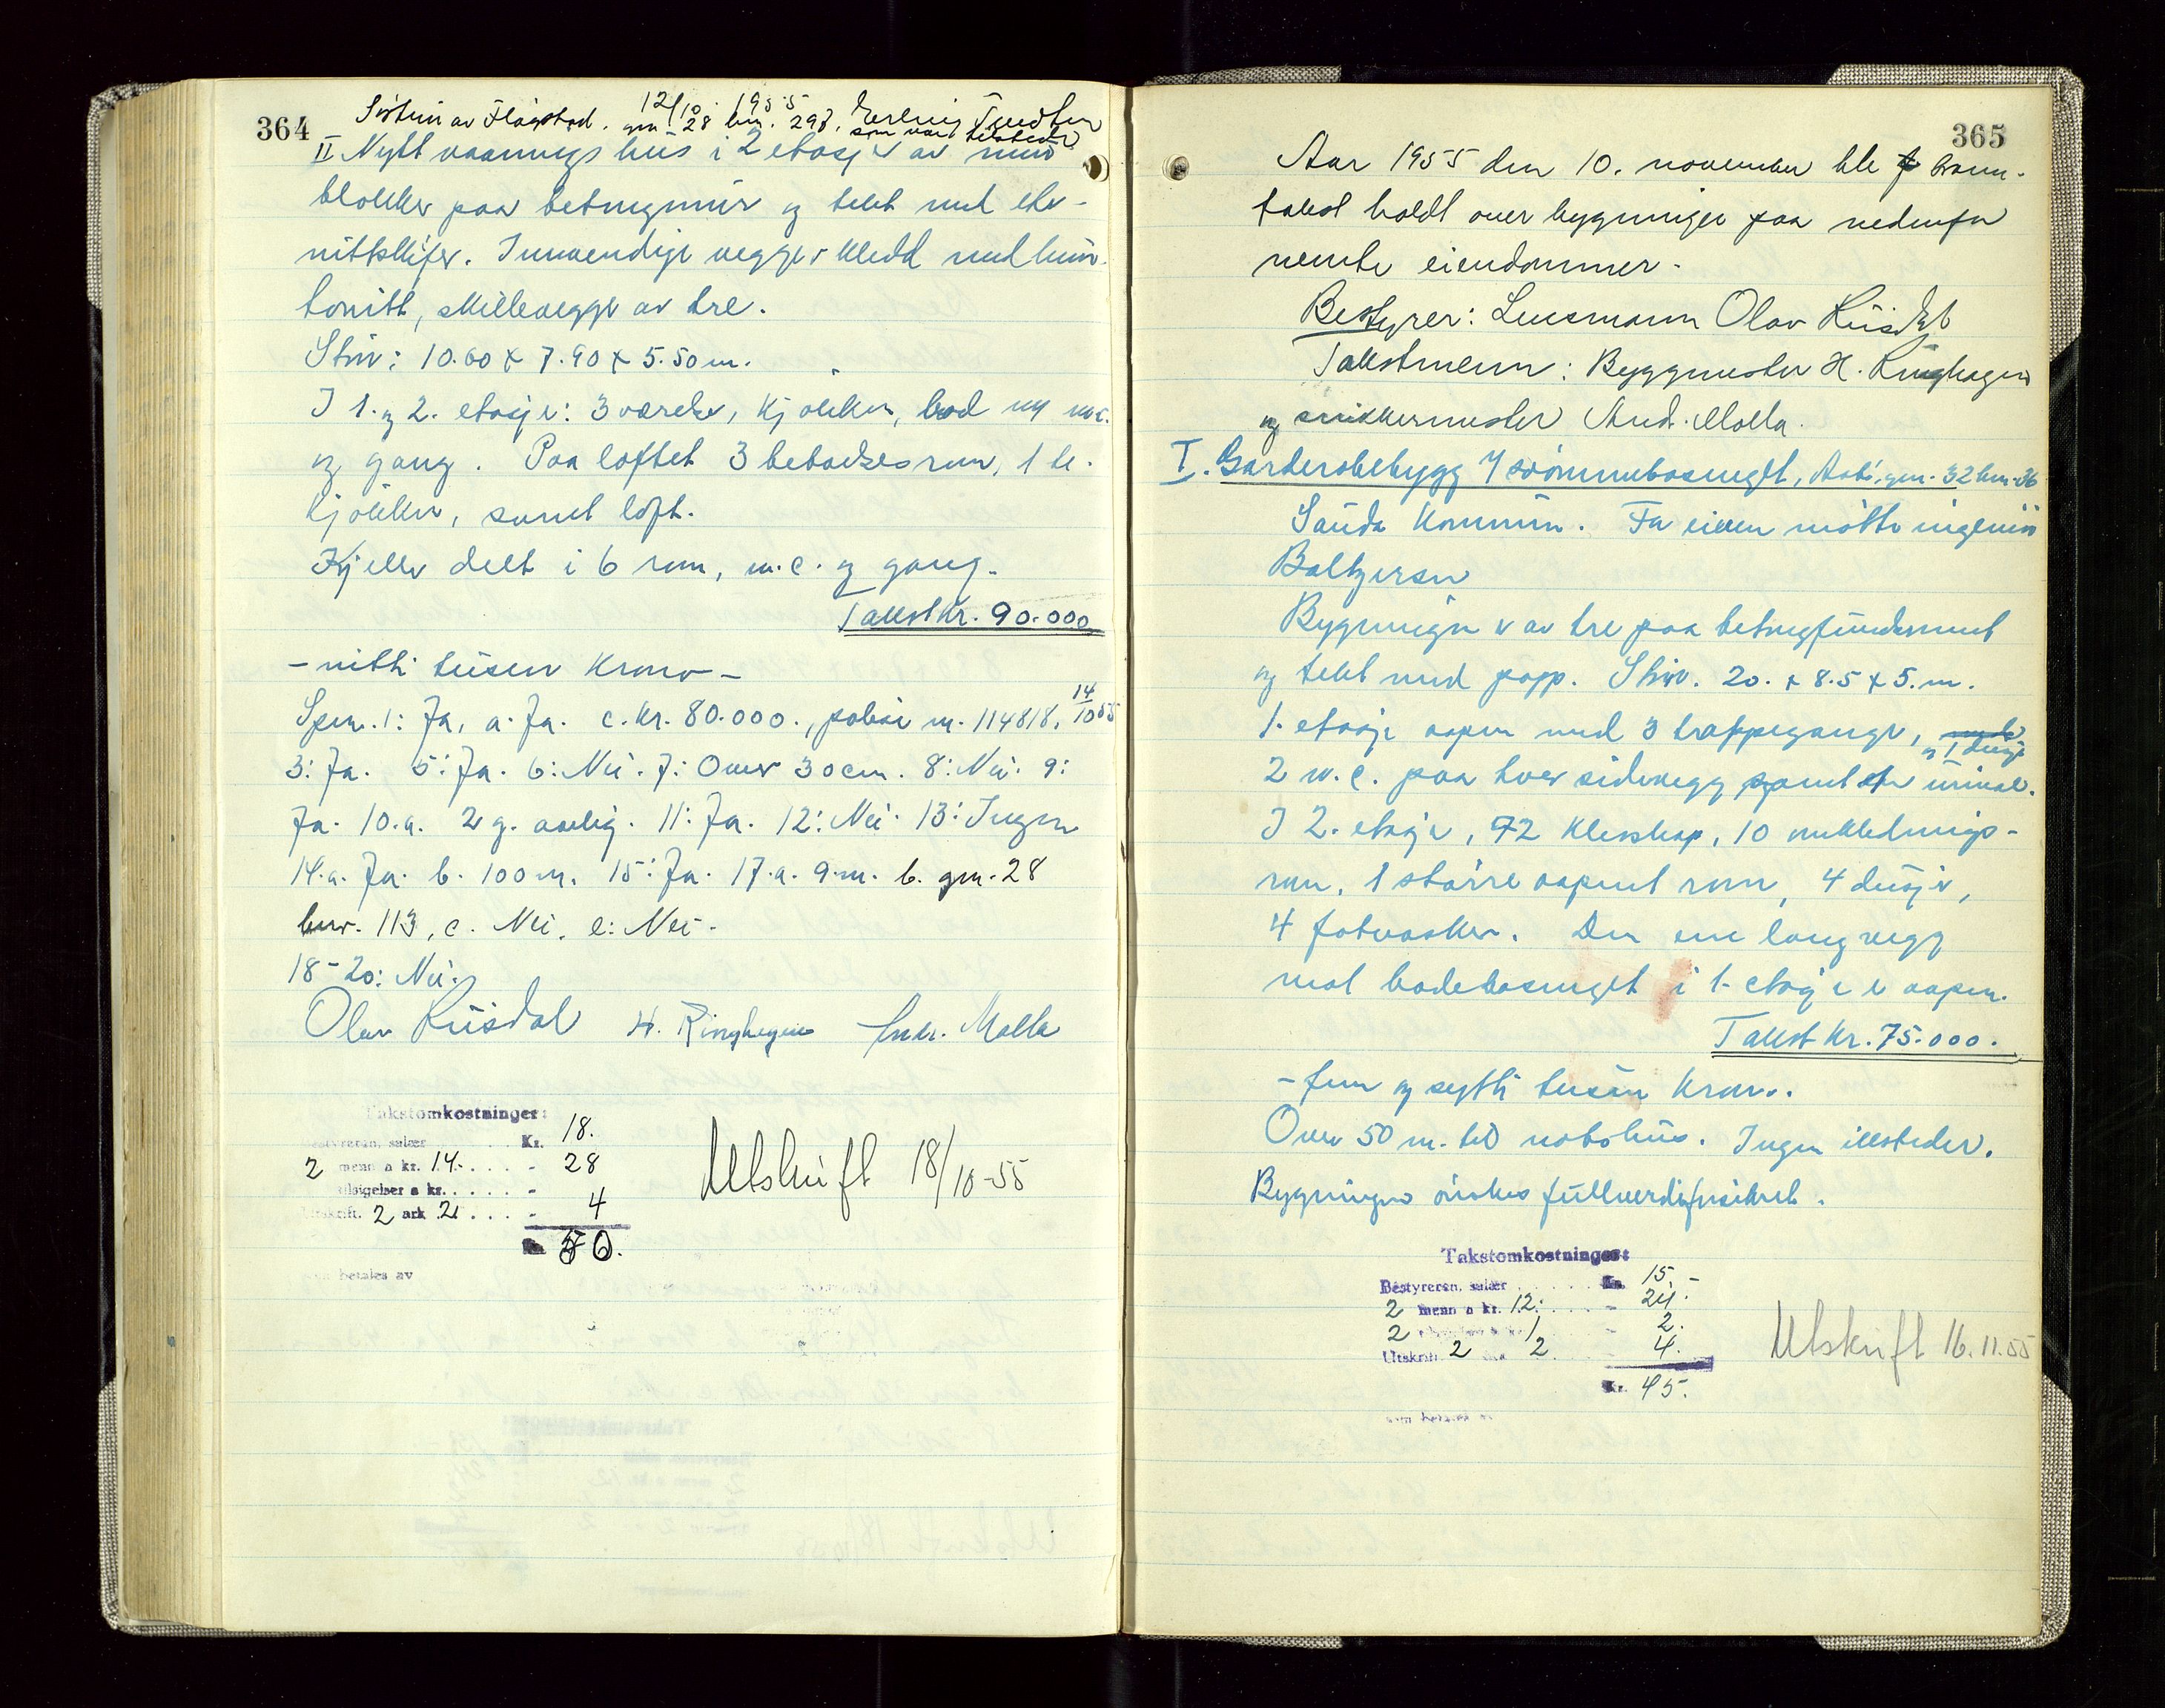 364
12/10 1955
av Flagstad. gnr. 28 bnr. 297. Erling Tvedten
som var tilstede
II Nytt vaaningshus i 2 etasjer av
blokker paa betongmur og tekt med eter-
nittskifer. Innvendige vegger kledd med hun-
tonitt, skillevegger av tre.
Størr: 10.60 x 7.90 x 5.50 m.
I 1. og 2. etasje: 3 værelser, kjøkken, bad m/ w.c.
og gang. Paa loftet 3 beboelsesrum, 1 te-
kjøkken, samt loft.
Kjeller delt i 6 rum, w.c. og gang.
Takst kr. 90.000
- nitti tusen kroner -
Spm. 1: Ja, a. Ja. c. Kr. 80.000., polise nr. 114818, 14/10 55
3: Ja. 5: Ja. 6: Nei. 7: Over 30 cm. 8: Nei. 9:
Ja. 10.a. 2 g. aarlig. 11: Ja. 12: Nei. 13: Ingen
14.a. Ja. b. 100 m. 15: Ja. 17.a. 9 m. b. gnr. 28
bnr. 113, c. Nei, e: Nei.
18-20: Nei.
Olav Riisdal H. Ringhagen Andr. Molla
Takstomkostninger:
Bestyreren, salær Kr. 18.
2 menn a kr. 14.- - 28
tilsigelser a kr. -
Utskrift. 2 ark 2 - 4
Kr. 50.
som betales av
Utskrift 18/10-55
365
Aar 1955 den 10. november ble brann-
takst holdt over bygninger paa nedenfor
nevnte eiendommer.
Bestyrer: Lensmann Olav Riisdal
Takstmenn: Byggmester H. Ringhagen
og snikkermester And. Molla.
I. Garderobebygg v/ svømmebasenget, gnr. 32 bnr. 36
Sauda Kommune. For eieren møtte ingeniør
Baltzersen
Bygningen er av tre paa betongfundament
og tekt med papp. Størr. 20. x 8.5 x 5. m.
1. etasje aapen med 3 trappeganger,
og 1 dusj
2 w.c. paa hver sidevegg samt urinal.
I 2. etasje, 72 klesskap, 10 omklednings-
rum, 1 større aapent rum, 4 dusjer,
4 fotvasker. Den ene langvegg
mot badebasenget i 1. etasje er aapen.
Takst kr. 75.000.
- fem og sytti tusen kroner.
Over 50 m. til nabohus. Ingen ildsteder.
Bygningen ønskes fullverdiforsikret.
Takstomkostninger:
Bestyreren, salær Kr. 15.-
2 menn a kr. 12: - 24.-
2 1 - 2.
Utskrift 2 ark 2 4.
Kr. 45.
som betales av
Utskrift 16.11.55